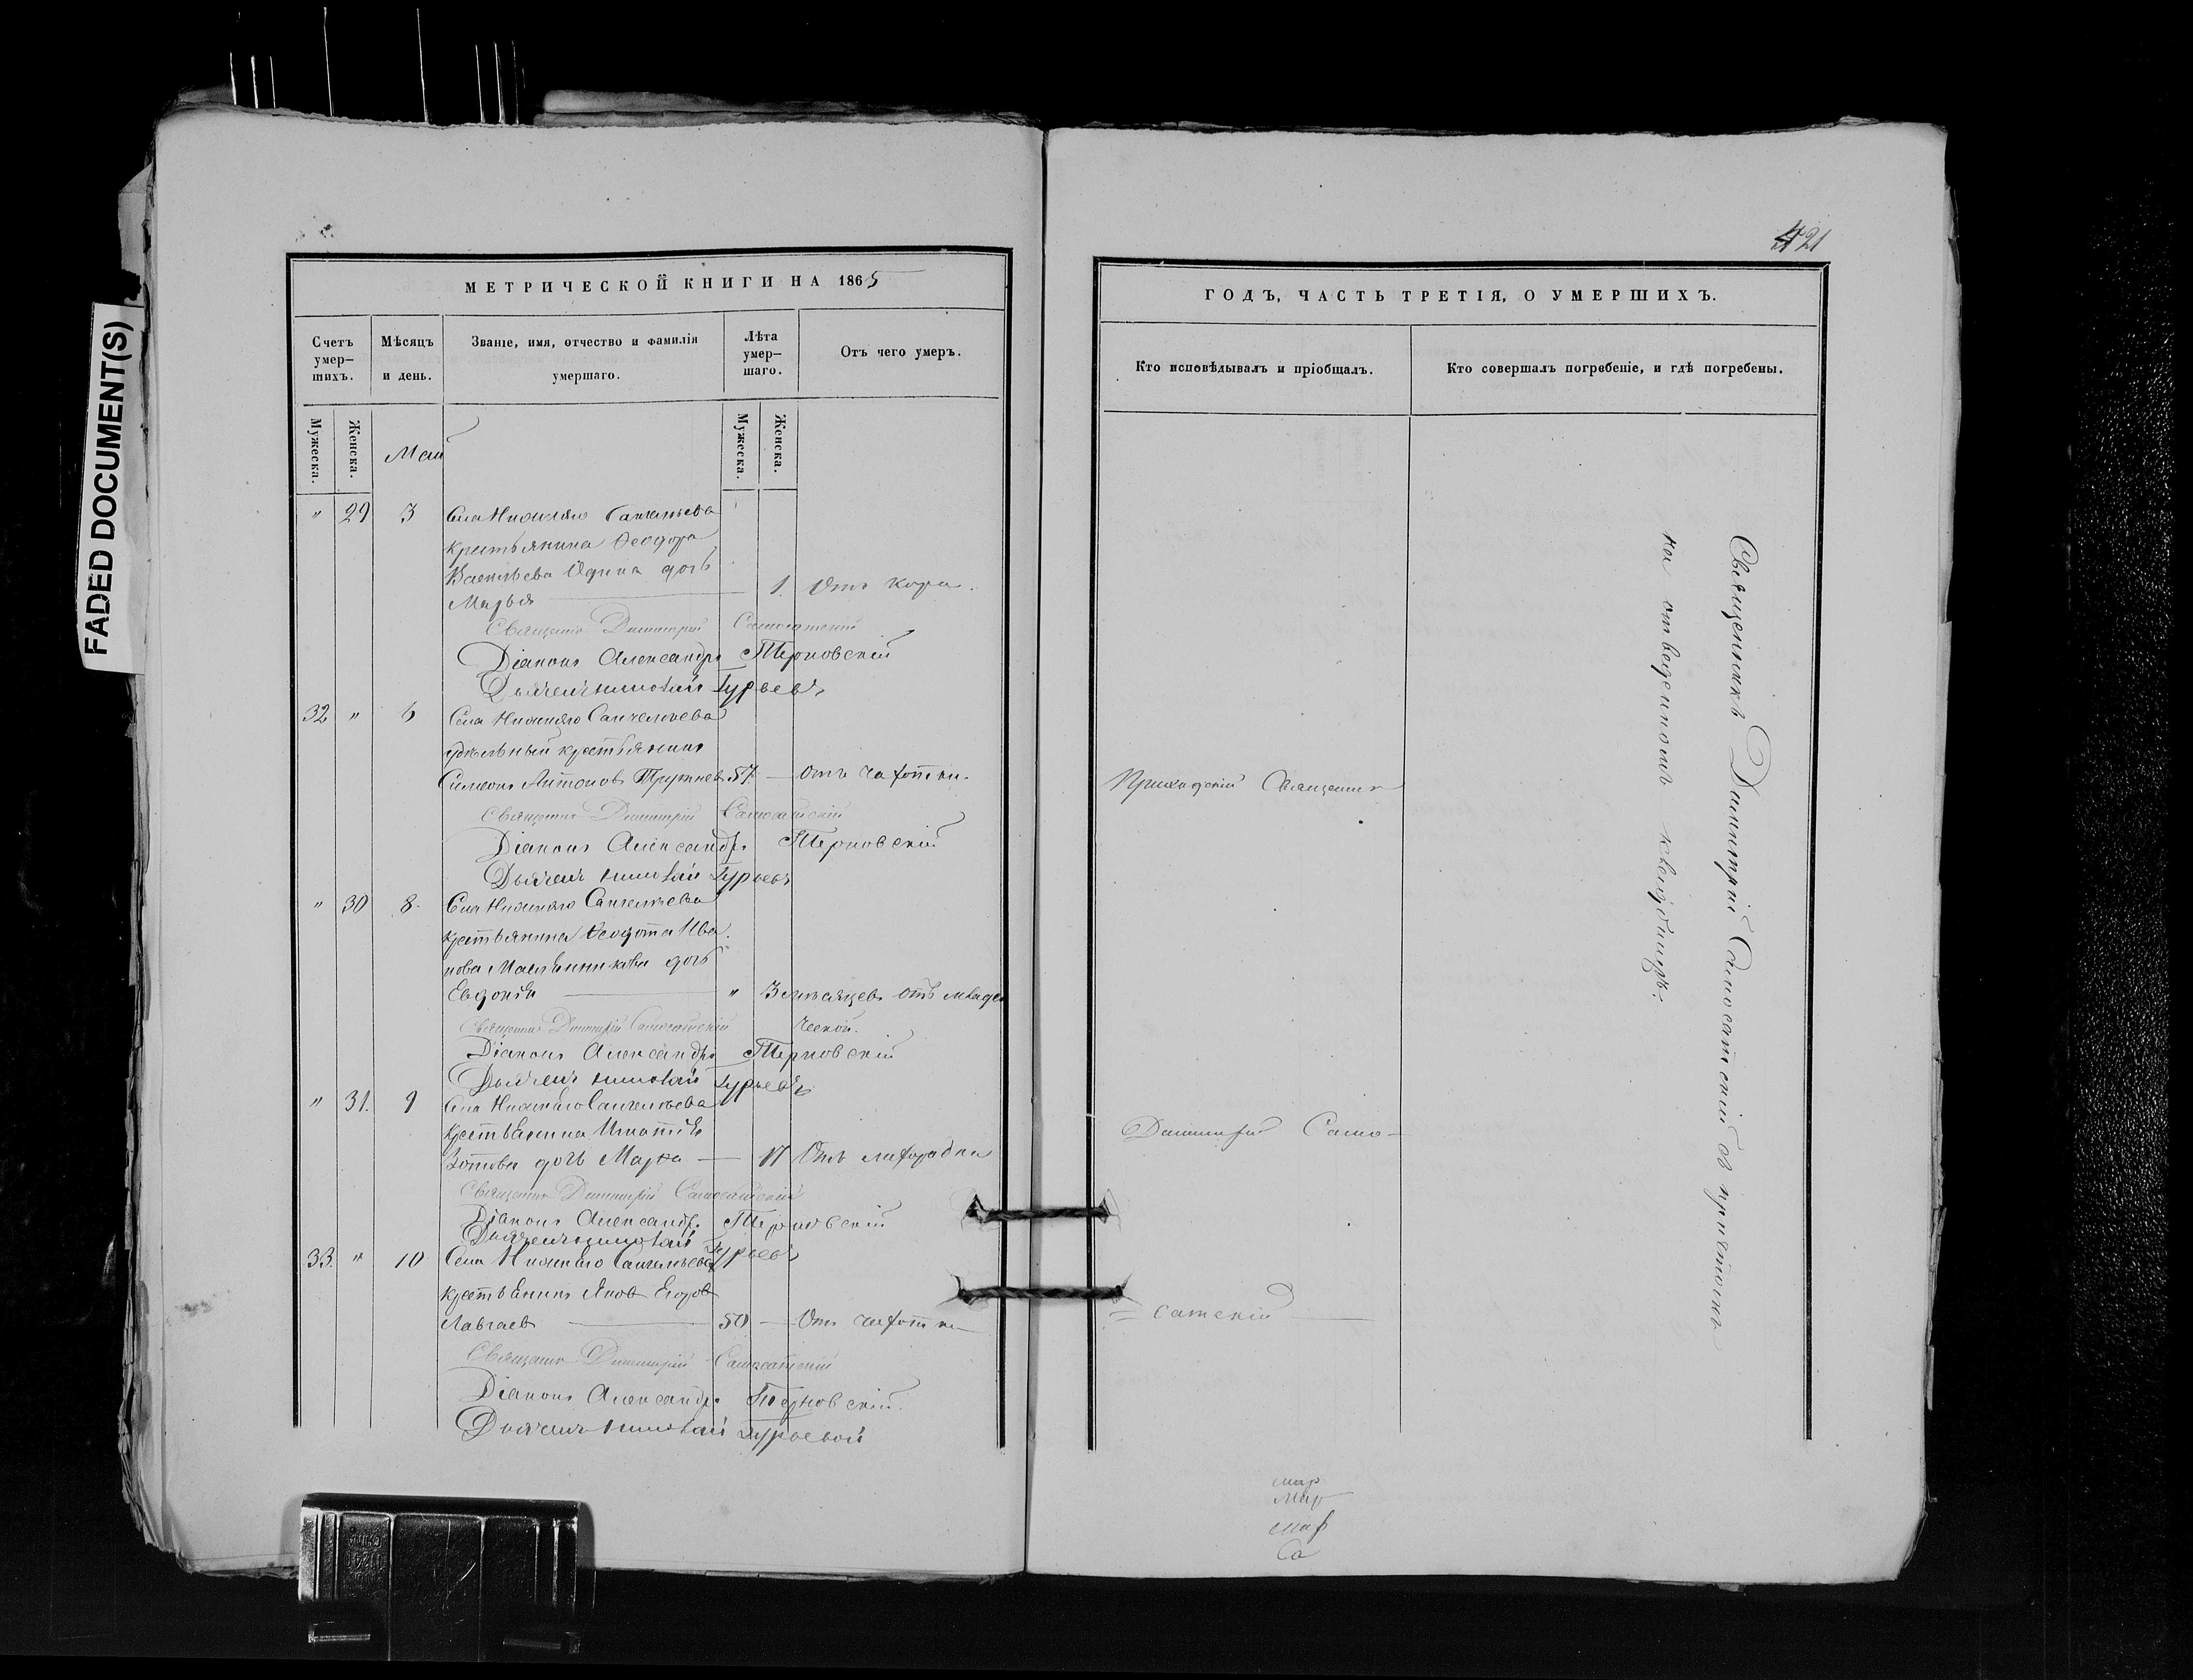 FADED DOCUMENT(S)
МЕТРИЧЕСКОЙ КНИГИ НА 1865
Счетъ умер–шихъ.
Мѣсяцъ и день.
Званіе, имя, отчество и фамилія умершаго.
Лѣта умер–шаго.
Отъ чего умеръ.
Мужеска.
Женска.
Мужеска.
Женска.
Май
" 29 3 Села Нижняго Санчелѣева
крестьянина Ѳеодора
Васильева Юдина дочь
Марья — 1. Отъ кори.
Священникъ Димитрій Самосатскій
Діаконъ Александръ Терновскій
Дьячекъ Николай Гурьевъ
32 " 6 Села Нижняго Санчелѣева
удѣльный крестьянинъ
Симеонъ Антоновъ 57 — отъ чахотки.
Священникъ Димитрій Самосатскій
Діаконъ Александръ Терновскій
Дьячекъ Николай Гурьевъ
" 30 8. Села Нижняго Санчелѣева
крестьянина Ѳеодота Ива
нова Масленникова дочь
Евдокія — " 3 мѣсяцевъ отъ младен
ческой.
Священникъ Димитрій Самосатскій
Діаконъ Александръ Терновскій
Дьячекъ Николай Гурьевъ
" 31. 9 Села Нижняго Санчелѣева
крестьянина Игнатія
Зотова дочь — 17 Отъ лихорадки
Священникъ Димитрій Самосатскій
Діаконъ Александръ Терновскій
Дьячекъ Николай Гурьевъ
33. " 10 Села Нижняго Санчелѣева
крестьянинъ Яковъ Егоровъ
— 50 — Отъ чахотки
Священникъ Димитрій Самосатскій
Діаконъ Александръ Терновскій.
Дьячекъ Николай Гурьевой
421
ГОДЪ, ЧАСТЬ ТРЕТІЯ, О УМЕРШИХЪ.
Кто исповѣдывалъ и пріобщалъ.
Кто совершалъ погребеніе, и гдѣ погребены.
Приходскій Священникъ
Димитрій Само-
= сатскій —
Священникъ Димитрій Самосатскій съ причтомъ
на отведенномъ кладбищѣ.
мар
Мар
Мар
Са